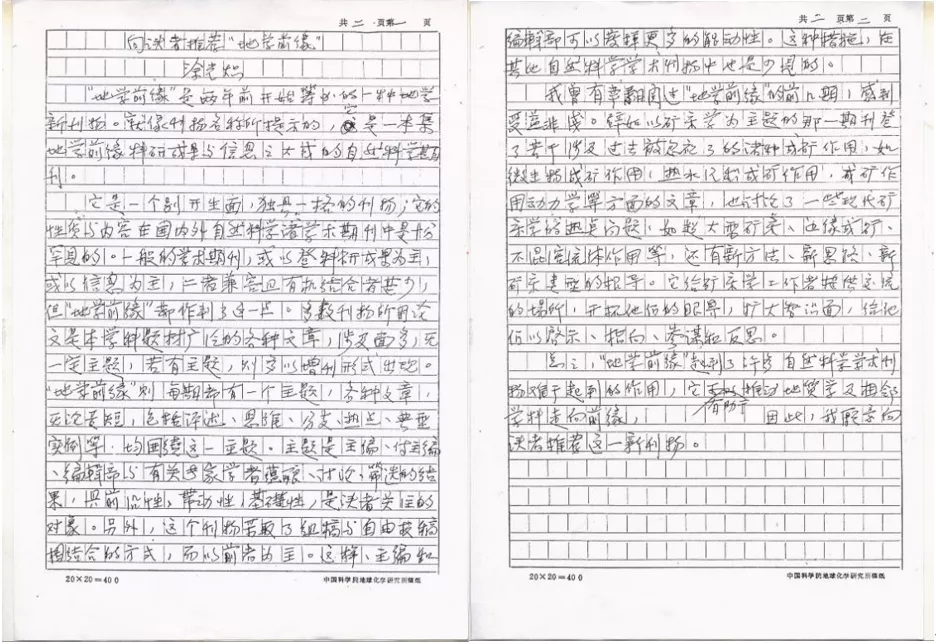 共 二 页第 一 页
向读者推荐“地学前缘”
涂光炽
“地学前缘”是两年前开始筹办的一种地学
新刊物。就像刊物名称所提示的，它是一本集
地学前缘科研成果与信息之大成的自然科学期
刊。
它是一个别开生面，独具一格的刊物；它的
性质与内容在国内外自然科学诸学术期刊中是十分
罕见的。一般的学术期刊，或以登科研成果为主，
或以信息为主，二者兼容且有机结合者甚少，
但“地学前缘”都作到了这一点。多数刊物所刊论
文是本学科题材广泛的各种文章，涉及面多，无
一定主题，若有主题，则多以增刊形式出现。
“地学前缘”则每期都有一个主题，各种文章，
无论长短，包括评述、思维、分支、热点、典型
实例等，均围绕这一主题。主题是主编、付主编
、编辑部与有关专家学者酝酿、讨论、筛选的结
果，具前沿性，带动性，基础性，是读者关注的
对象。另外，这个刊物若取了组稿与自由投稿
相结合的方式，而以前者为主。这样，主编和
20×20=400
中国科学院地球化学研究所稿纸
共 二 页第 二 页
编辑部可以发挥更多的能动性。这种措施，在
其他自然科学学术刊物中也是少见的。
我曾有幸翻阅过“地学前缘”的前几期，感到
受益非浅。譬如以矿床学为主题的那一期刊登
了若干涉及过去被忽视了的诸种成矿作用，如
微生物成矿作用，热水沉积成矿作用，成矿作
用动力学等方面的文章，也讨论了一些现代矿
床学的热点问题，如超大型矿床、边缘成矿、
不混溶流体作用等，还有新方法、新思路、新
矿床类型的报导。它给矿床学工作者提供交流
的场所，开拓他们的眼界，扩大知识面，给他
们以启示、指向、参谋和反思。
总之，“地学前缘”起到了许多自然科学学术刊
物难于起到的作用，它有助于推动地质学及相邻
学科走向前缘， 因此，我愿意向
读者推荐这一新刊物。
20×20=400
中国科学院地球化学研究所稿纸